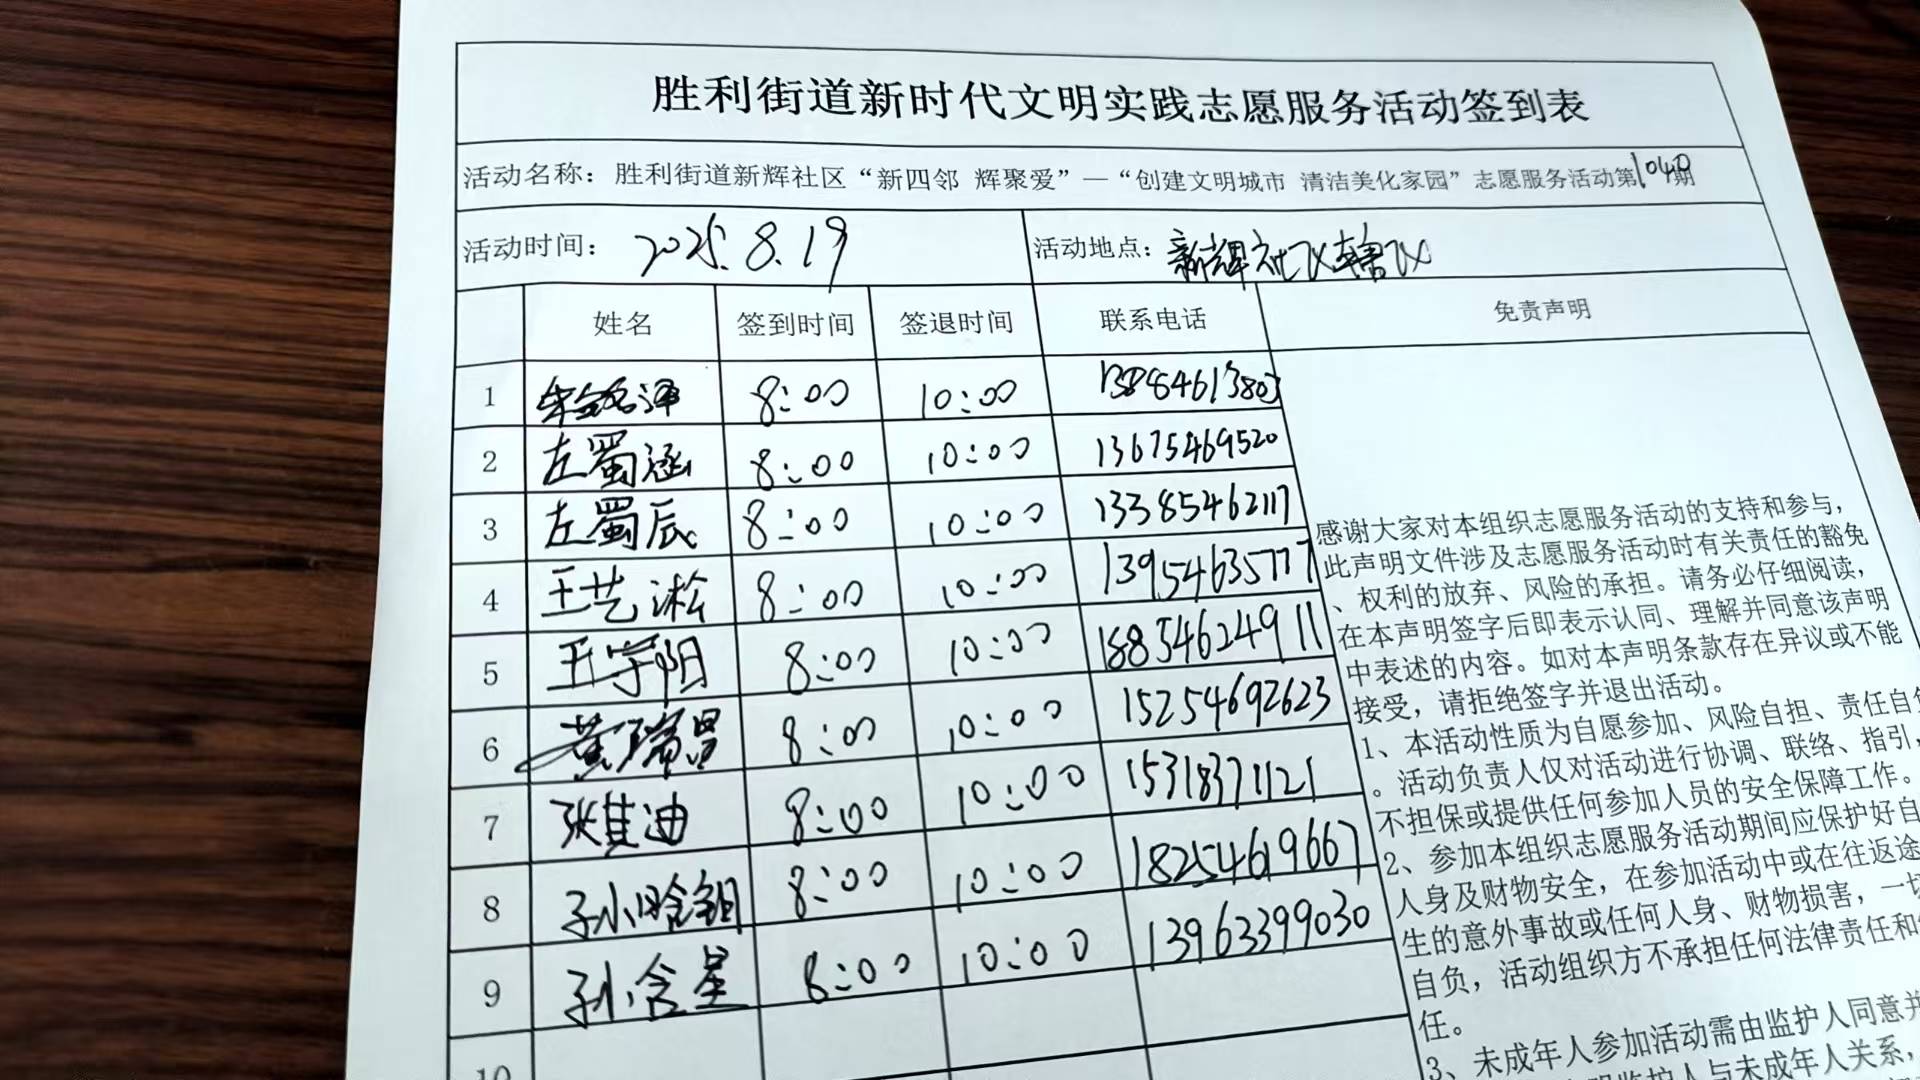 胜利街道新时代文明实践志愿服务活动签到表
活动名称：胜利街道新辉社区“新四邻 辉聚爱”—“创建文明城市 清洁美化家园”志愿服务活动第1040期
活动时间：2025.8.19 活动地点：新辉社区辖区
姓名 签到时间 签退时间 联系电话 免责声明
1 8:00 10:00 13884613803
2 左蜀涵 8:00 10:00 13675469520
3 左蜀辰 8:00 10:00 13385462117
4 王艺淞 8:00 10:00 13954635777
5 王宇阳 8:00 10:00 18854624911
6 黄瑞昌 8:00 10:00 15254692623
7 张萁迪 8:00 10:00 15318371121
8 孙晗钼 8:00 10:00 18254619667
9 孙含星 8:00 10:00 13963399030
10
感谢大家对本组织志愿服务活动的支持和参与，
此声明文件涉及志愿服务活动时有关责任的豁免
、权利的放弃、风险的承担。请务必仔细阅读，
在本声明签字后即表示认同、理解并同意该声明
中表述的内容。如对本声明条款存在异议或不能
接受，请拒绝签字并退出活动。
1、本活动性质为自愿参加、风险自担、责任自负
。活动负责人仅对活动进行协调、联络、指引，
不担保或提供任何参加人员的安全保障工作。
2、参加本组织志愿服务活动期间应保护好自
人身及财物安全，在参加活动中或在往返途
生的意外事故或任何人身、财物损害，一切
自负，活动组织方不承担任何法律责任和
任。
3、未成年人参加活动需由监护人同意并
监护人与未成年人关系，